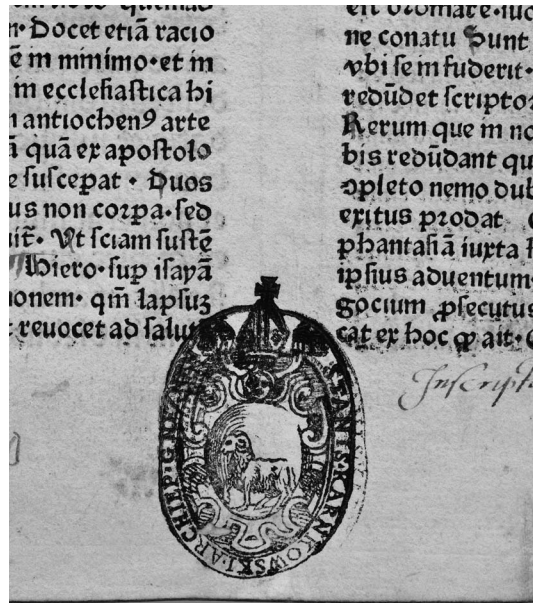 n· Docet etiā racio
ē in minimo·et in
in ecclesiastica hi
n antiochenꝰ arte
ā quā ex apostolo
e suscepat · Duos
us non corpa· sed
uit̄· Vt sciam sustē
Hiero· sup isayā
onem· qm̄ lapsuꝫ
t revocet ad salutē
ne conatu Sunt
vbi se infuderit·
redūdet scriptor
Rerum que in no
bis redūdant qu
ɔpleto nemo dub
exitus prodat
phantasiā iuxta
ipsius aduentum·
gocium ꝓsecutus
cat ex hoc ꝙ ait·
STANIS·KARNKOWSKI·ARCHIEP·G